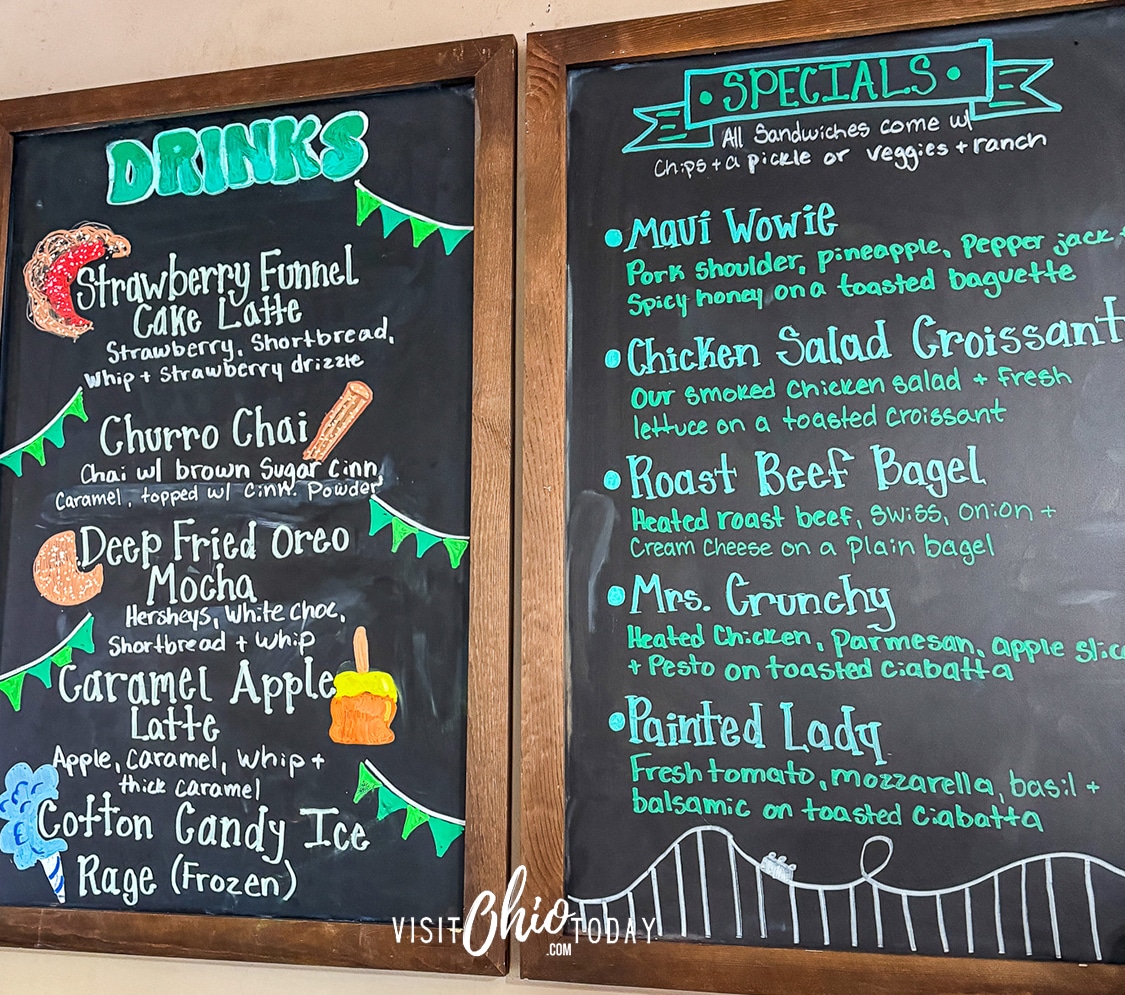 DRINKS
Strawberry Funnel
Cake Latte
Strawberry, Shortbread,
Whip + Strawberry drizzle
Churro Chai
Chai w/ brown Sugar Cinn.
Caramel, topped w/ Cinn. Powder
Deep Fried Oreo
Mocha
Hersheys, White Choc,
Shortbread + Whip
Caramel Apple
Latte
Apple, Caramel, Whip +
thick Caramel
Cotton Candy Ice
Rage (Frozen)
SPECIALS
All Sandwiches come w/
Chips + a pickle or veggies + ranch
Maui Wowie
Pork Shoulder, pineapple, Pepper jack +
Spicy honey on a toasted baguette
Chicken Salad Croissant
Our smoked Chicken salad + fresh
lettuce on a toasted croissant
Roast Beef Bagel
Heated roast beef, swiss, onion +
Cream Cheese on a plain bagel
Mrs. Crunchy
Heated Chicken, Parmesan, apple slic
+ Pesto on toasted Ciabatta
Painted Lady
Fresh tomato, mozzarella, basil +
balsamic on toasted Ciabatta
VISIT Ohio TODAY
.COM